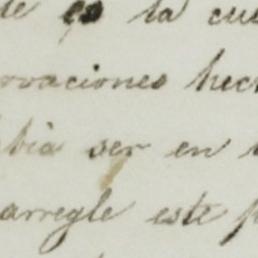 de es la cu
ovaciones hec
bia ser en
arregle este p